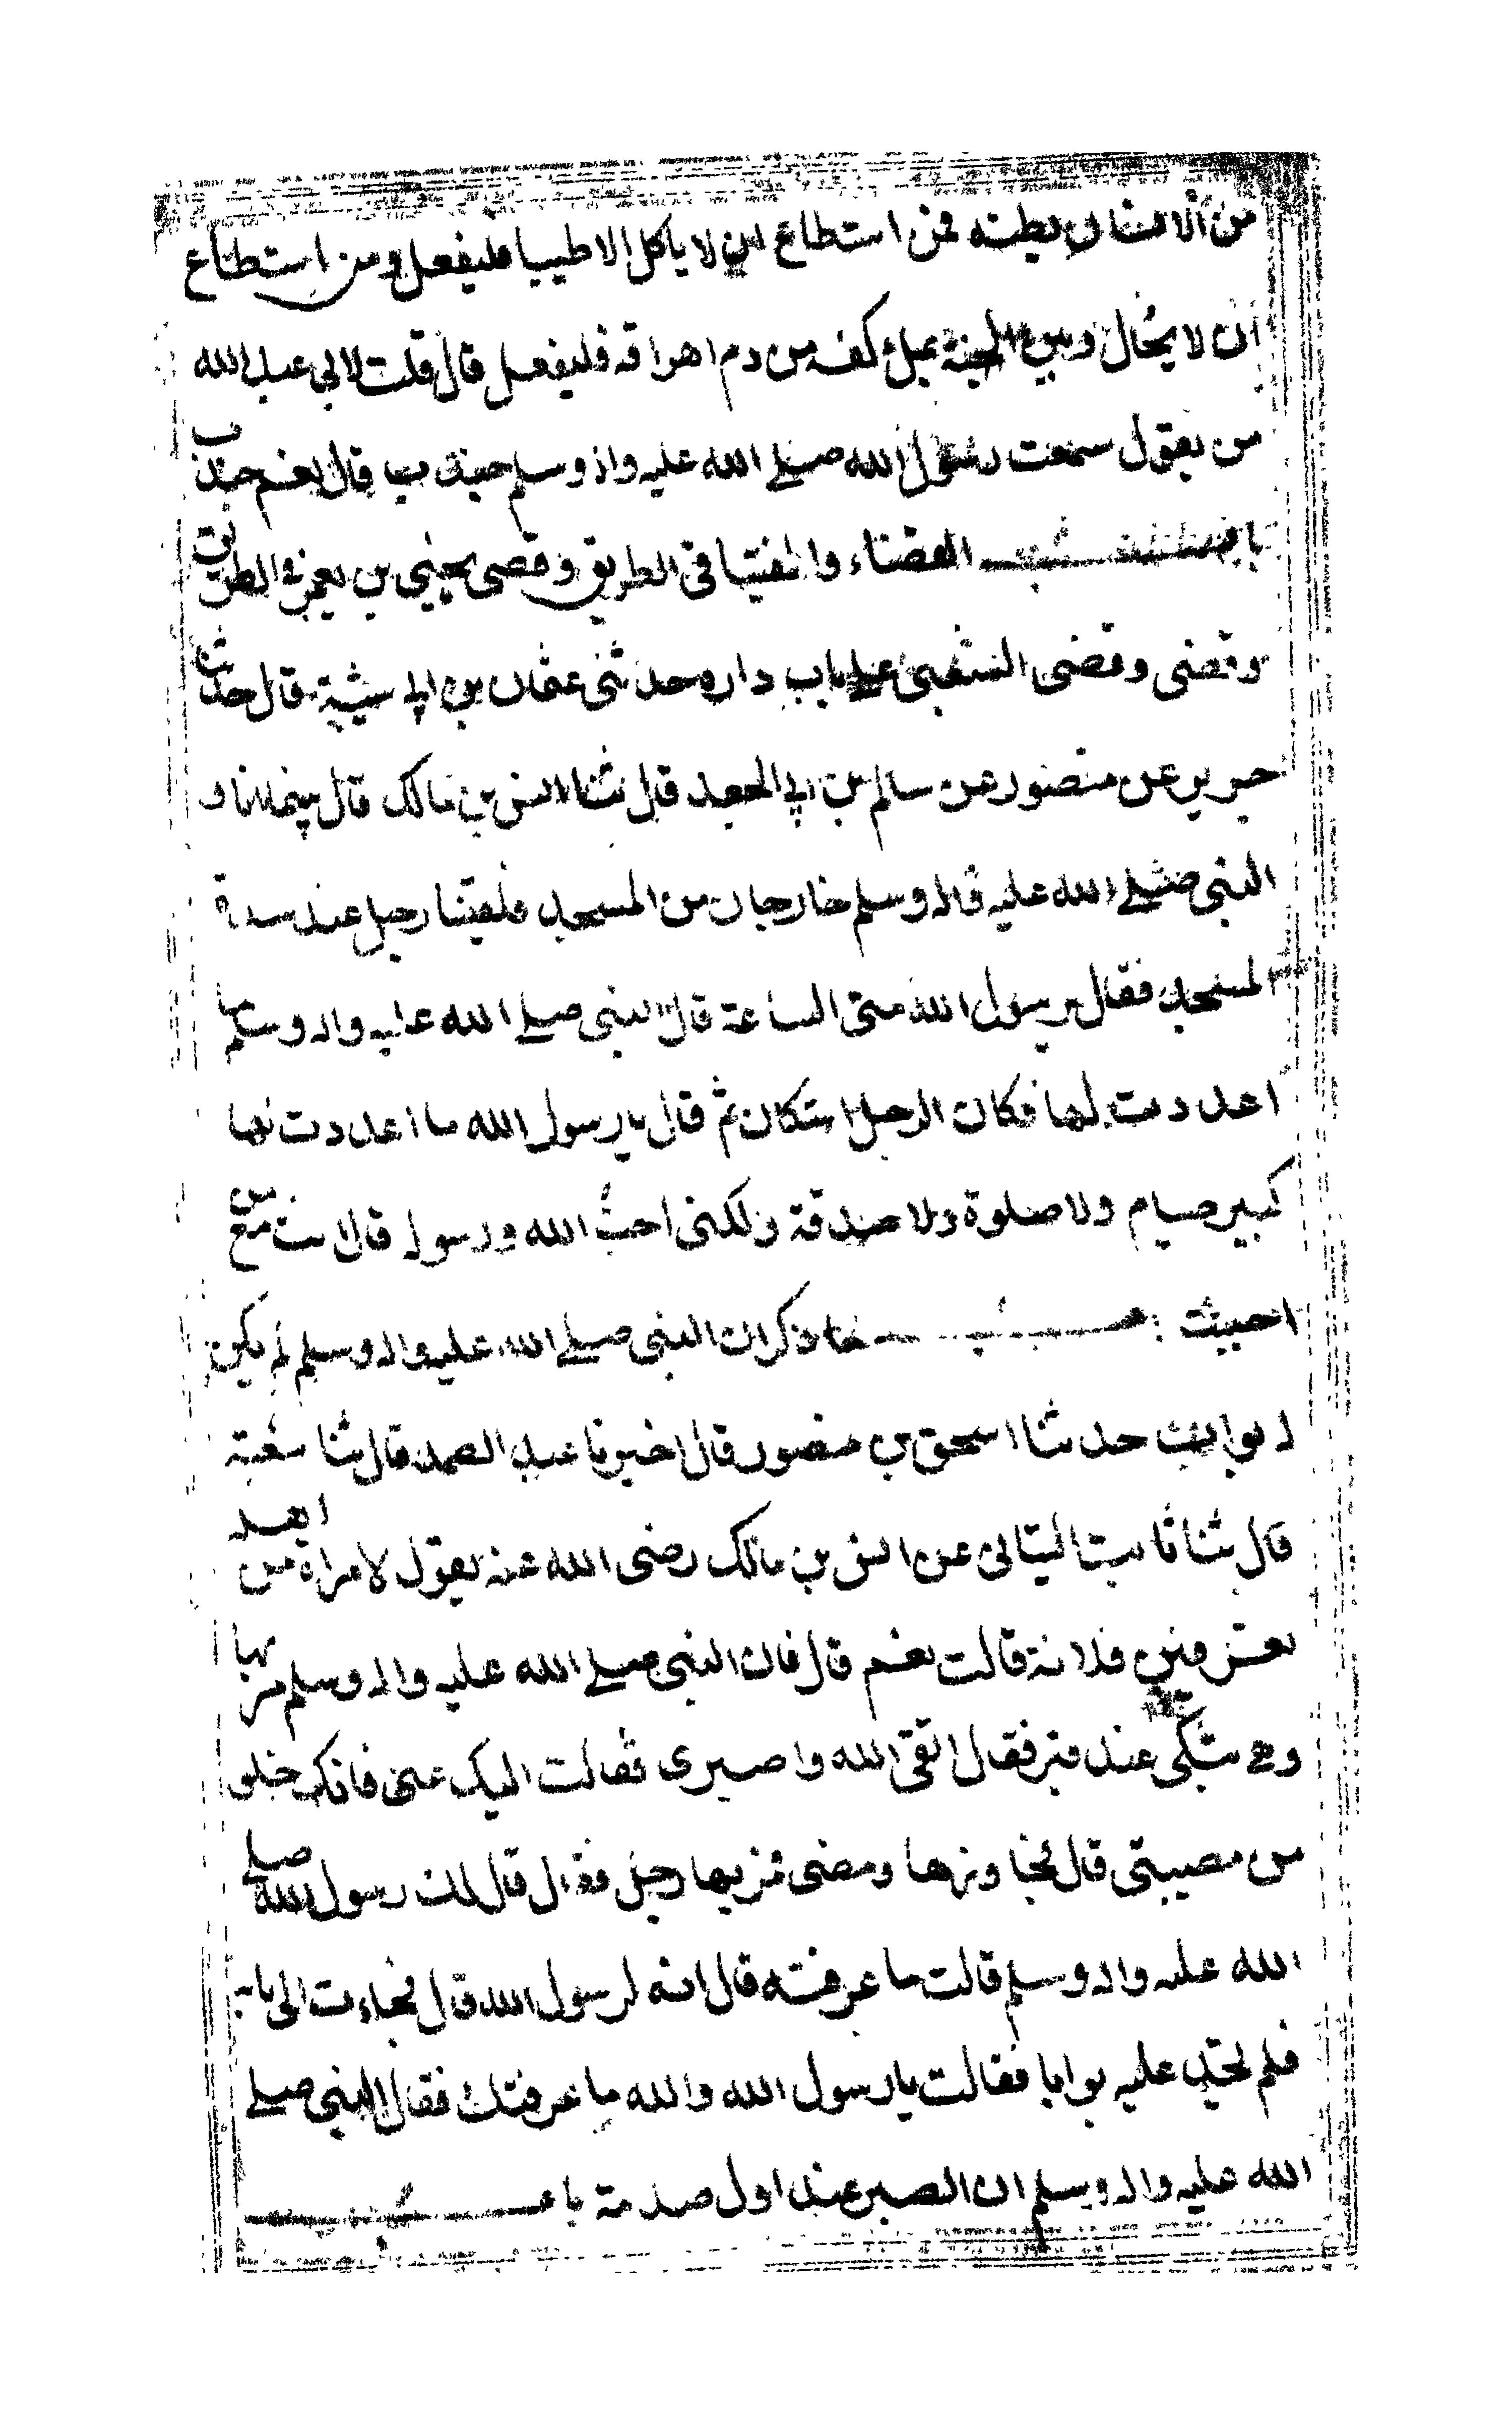 من الانسان بطنه فمن استطاع ان لا ياكل الا طيبا فليفعل ومن استطاع
ان لا يحال وبين الجنة بملء كفه من دم اهراقه فليفعل قال قلت لابي عبد الله
من يقول سمعت رسول الله صلى الله عليه واله وسلم جندب قال نعم جندب
باب القضاء والفتيا في الطريق وقضى يحيى بن يعمر في الطريق
وقضى وقضى الشعبي على باب داره حدثنى عثمان بن ابي شيبة قال حدثنا
جرير عن منصور عن سالم بن ابي الجعد قال ثنا انس بن مالك قال بينما انا و
النبى صلى الله عليه واله وسلم خارجان من المسجد فلقينا رجل عند سدة
المسجد فقال يرسول الله متى الساعة قال النبى صلى الله عليه واله وسلم ما
اعددت لها فكان الرجل استكان ثم قال يا رسول الله ما اعددت لها
كبير صيام ولا صلوة ولا صدقة ولكنى احب الله ورسوله قال انت مع من
احببت باب ما ذكر ان النبى صلى الله عليه واله وسلم لم يكن
له بواب حدثنا اسحق بن منصور قال اخبرنا عبد الصمد قال ثنا شعبة
قال ثنا ثابت البنانى عن انس بن مالك رضى الله عنه يقول لامراة من اهله
تعرفين فلانة قالت نعم قال فان النبى صلى الله عليه واله وسلم مر بها
وهي تبكى عند قبر فقال اتقى الله واصبرى فقالت اليك عنى فانك خلو
من مصيبتى قال فجاوزها ومضى فمر بها رجل فقال ما قال لك رسول الله صلى
الله عليه واله وسلم قالت ما عرفته قال انه لرسول الله قال فجاءت الى بابه
فلم تجد عليه بوابا فقالت يا رسول الله والله ما عرفتك فقال النبى صلى
الله عليه واله وسلم ان الصبر عند اول صدمة باب